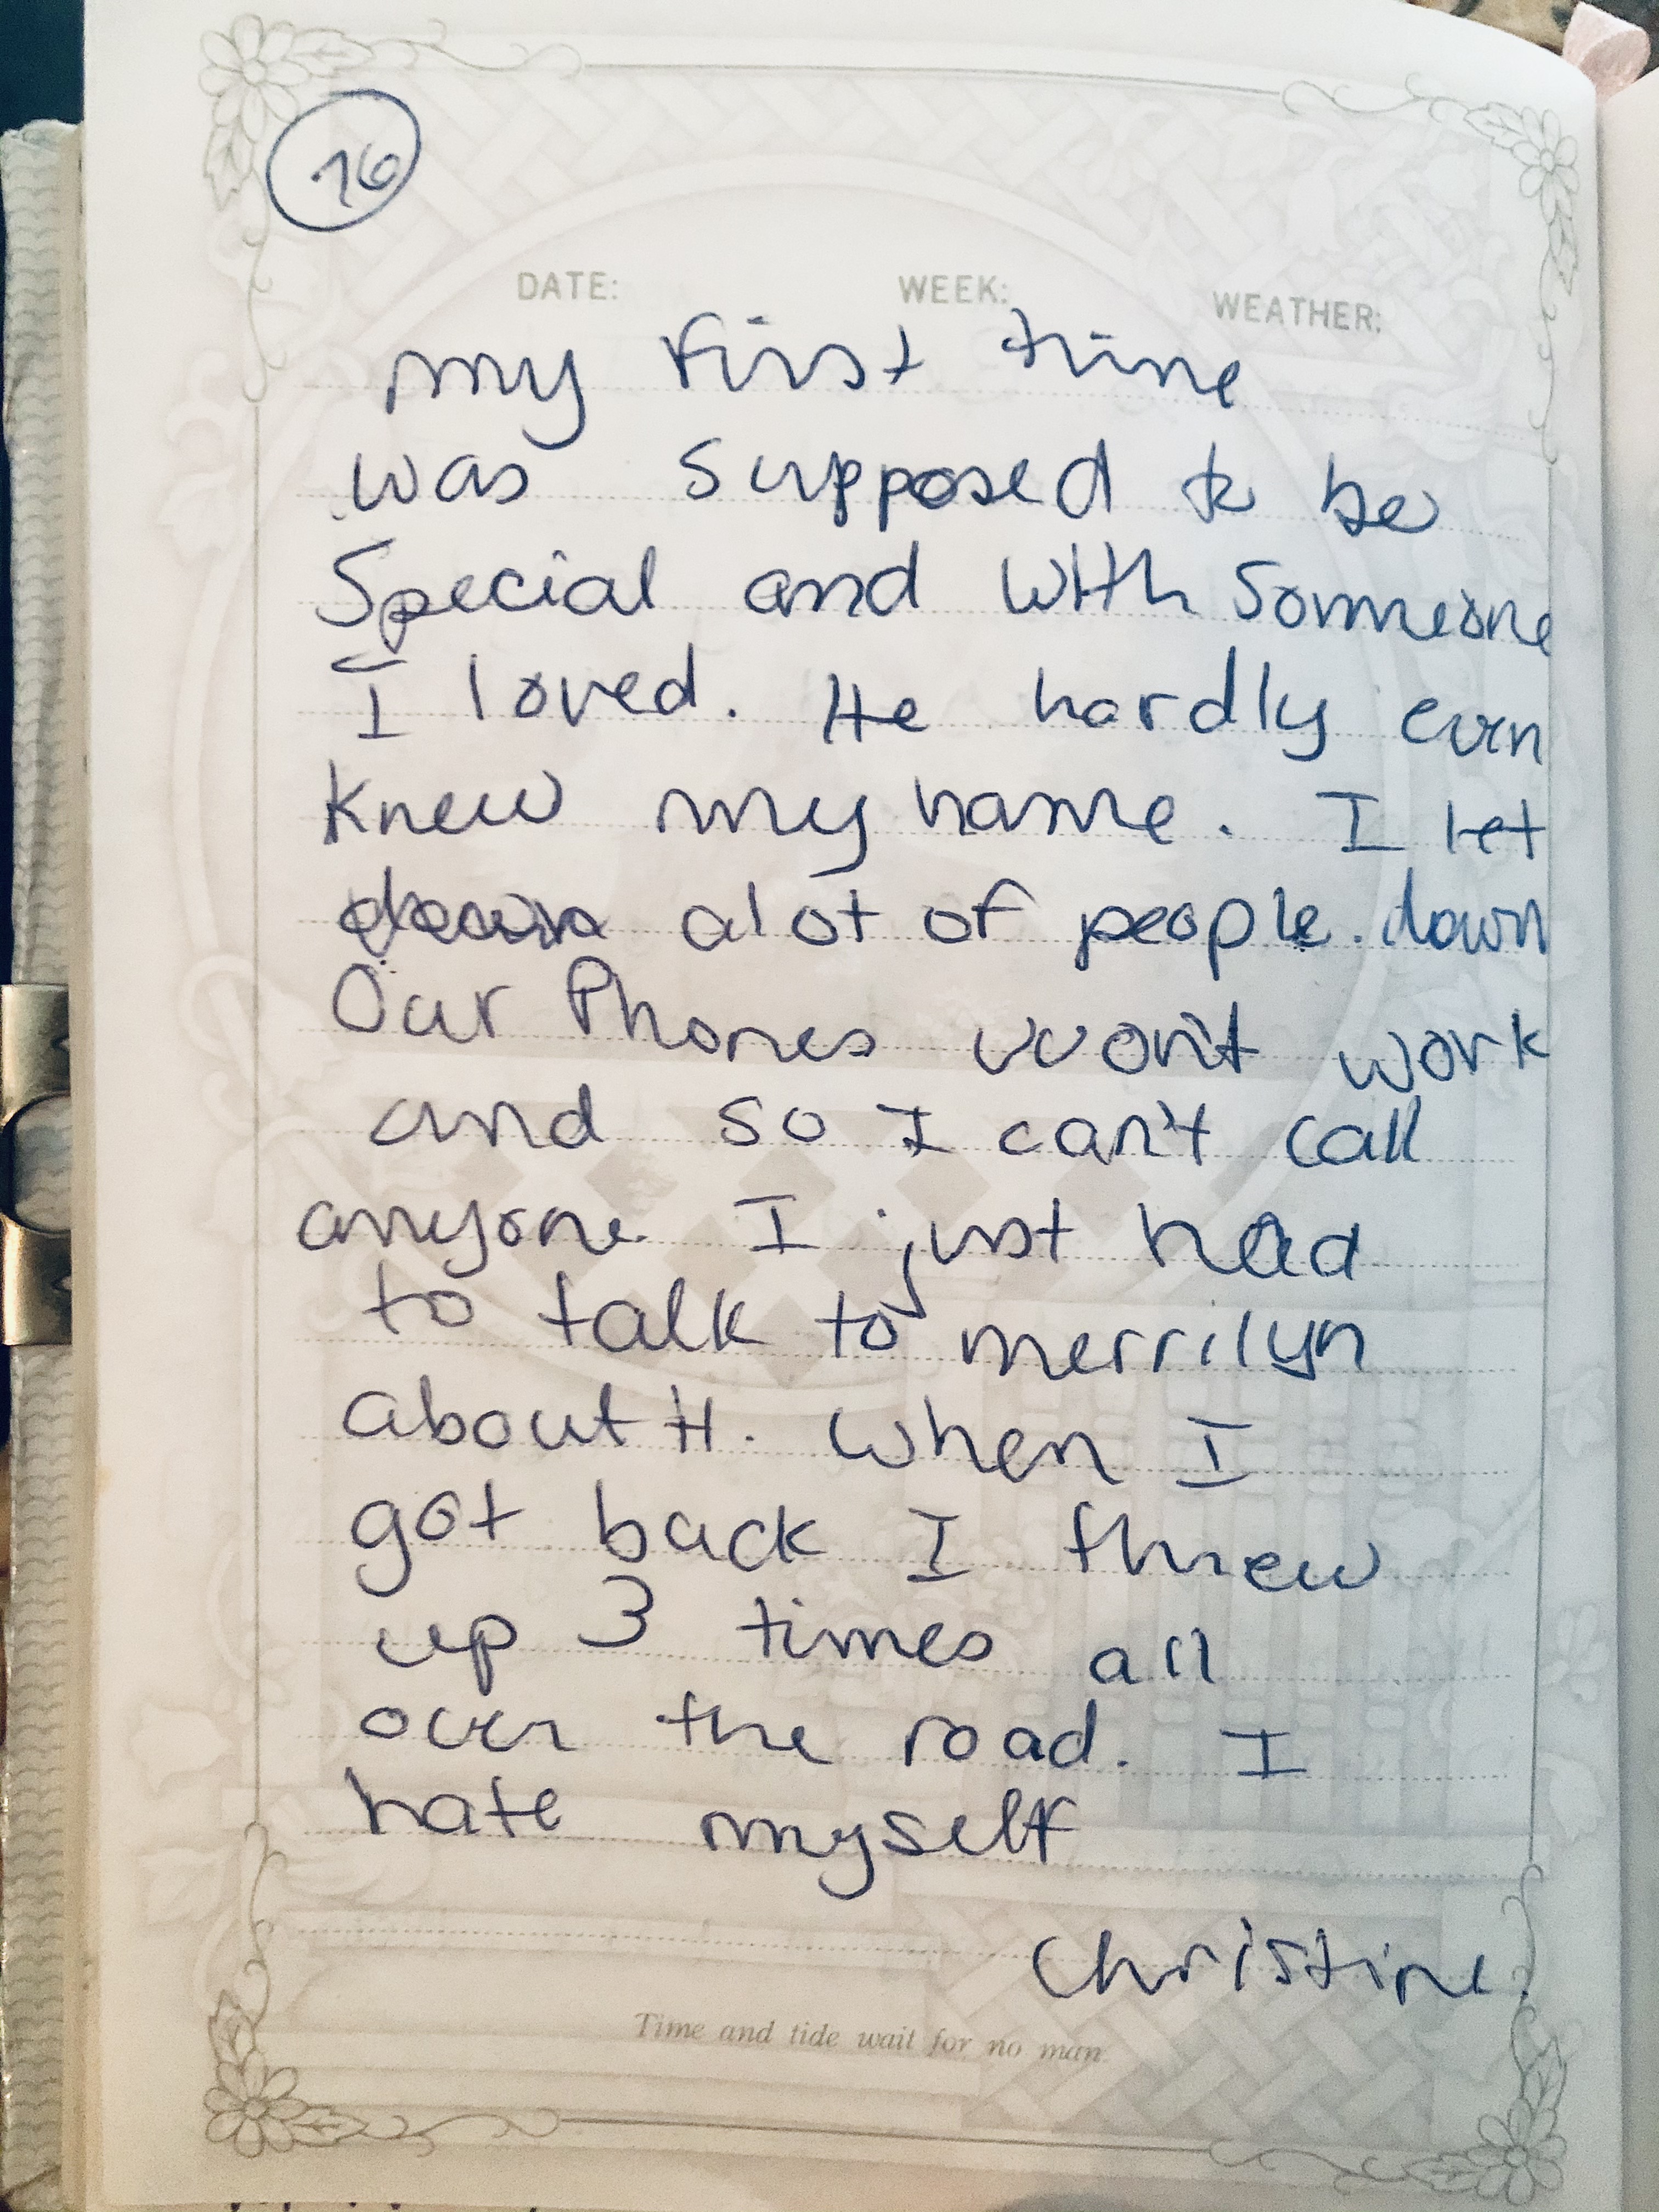 16
DATE: WEEK: WEATHER:
my first time
was supposed to be
Special and with Someone
I loved. He hardly even
knew my name. I let
down alot of people. down
Our Phones won't work
and so I can't call
anyone I just had
to talk to merrilyn
about it. When I
got back I threw
up 3 times all
over the road. I
hate myself
Christine.
Time and tide wait for no man.